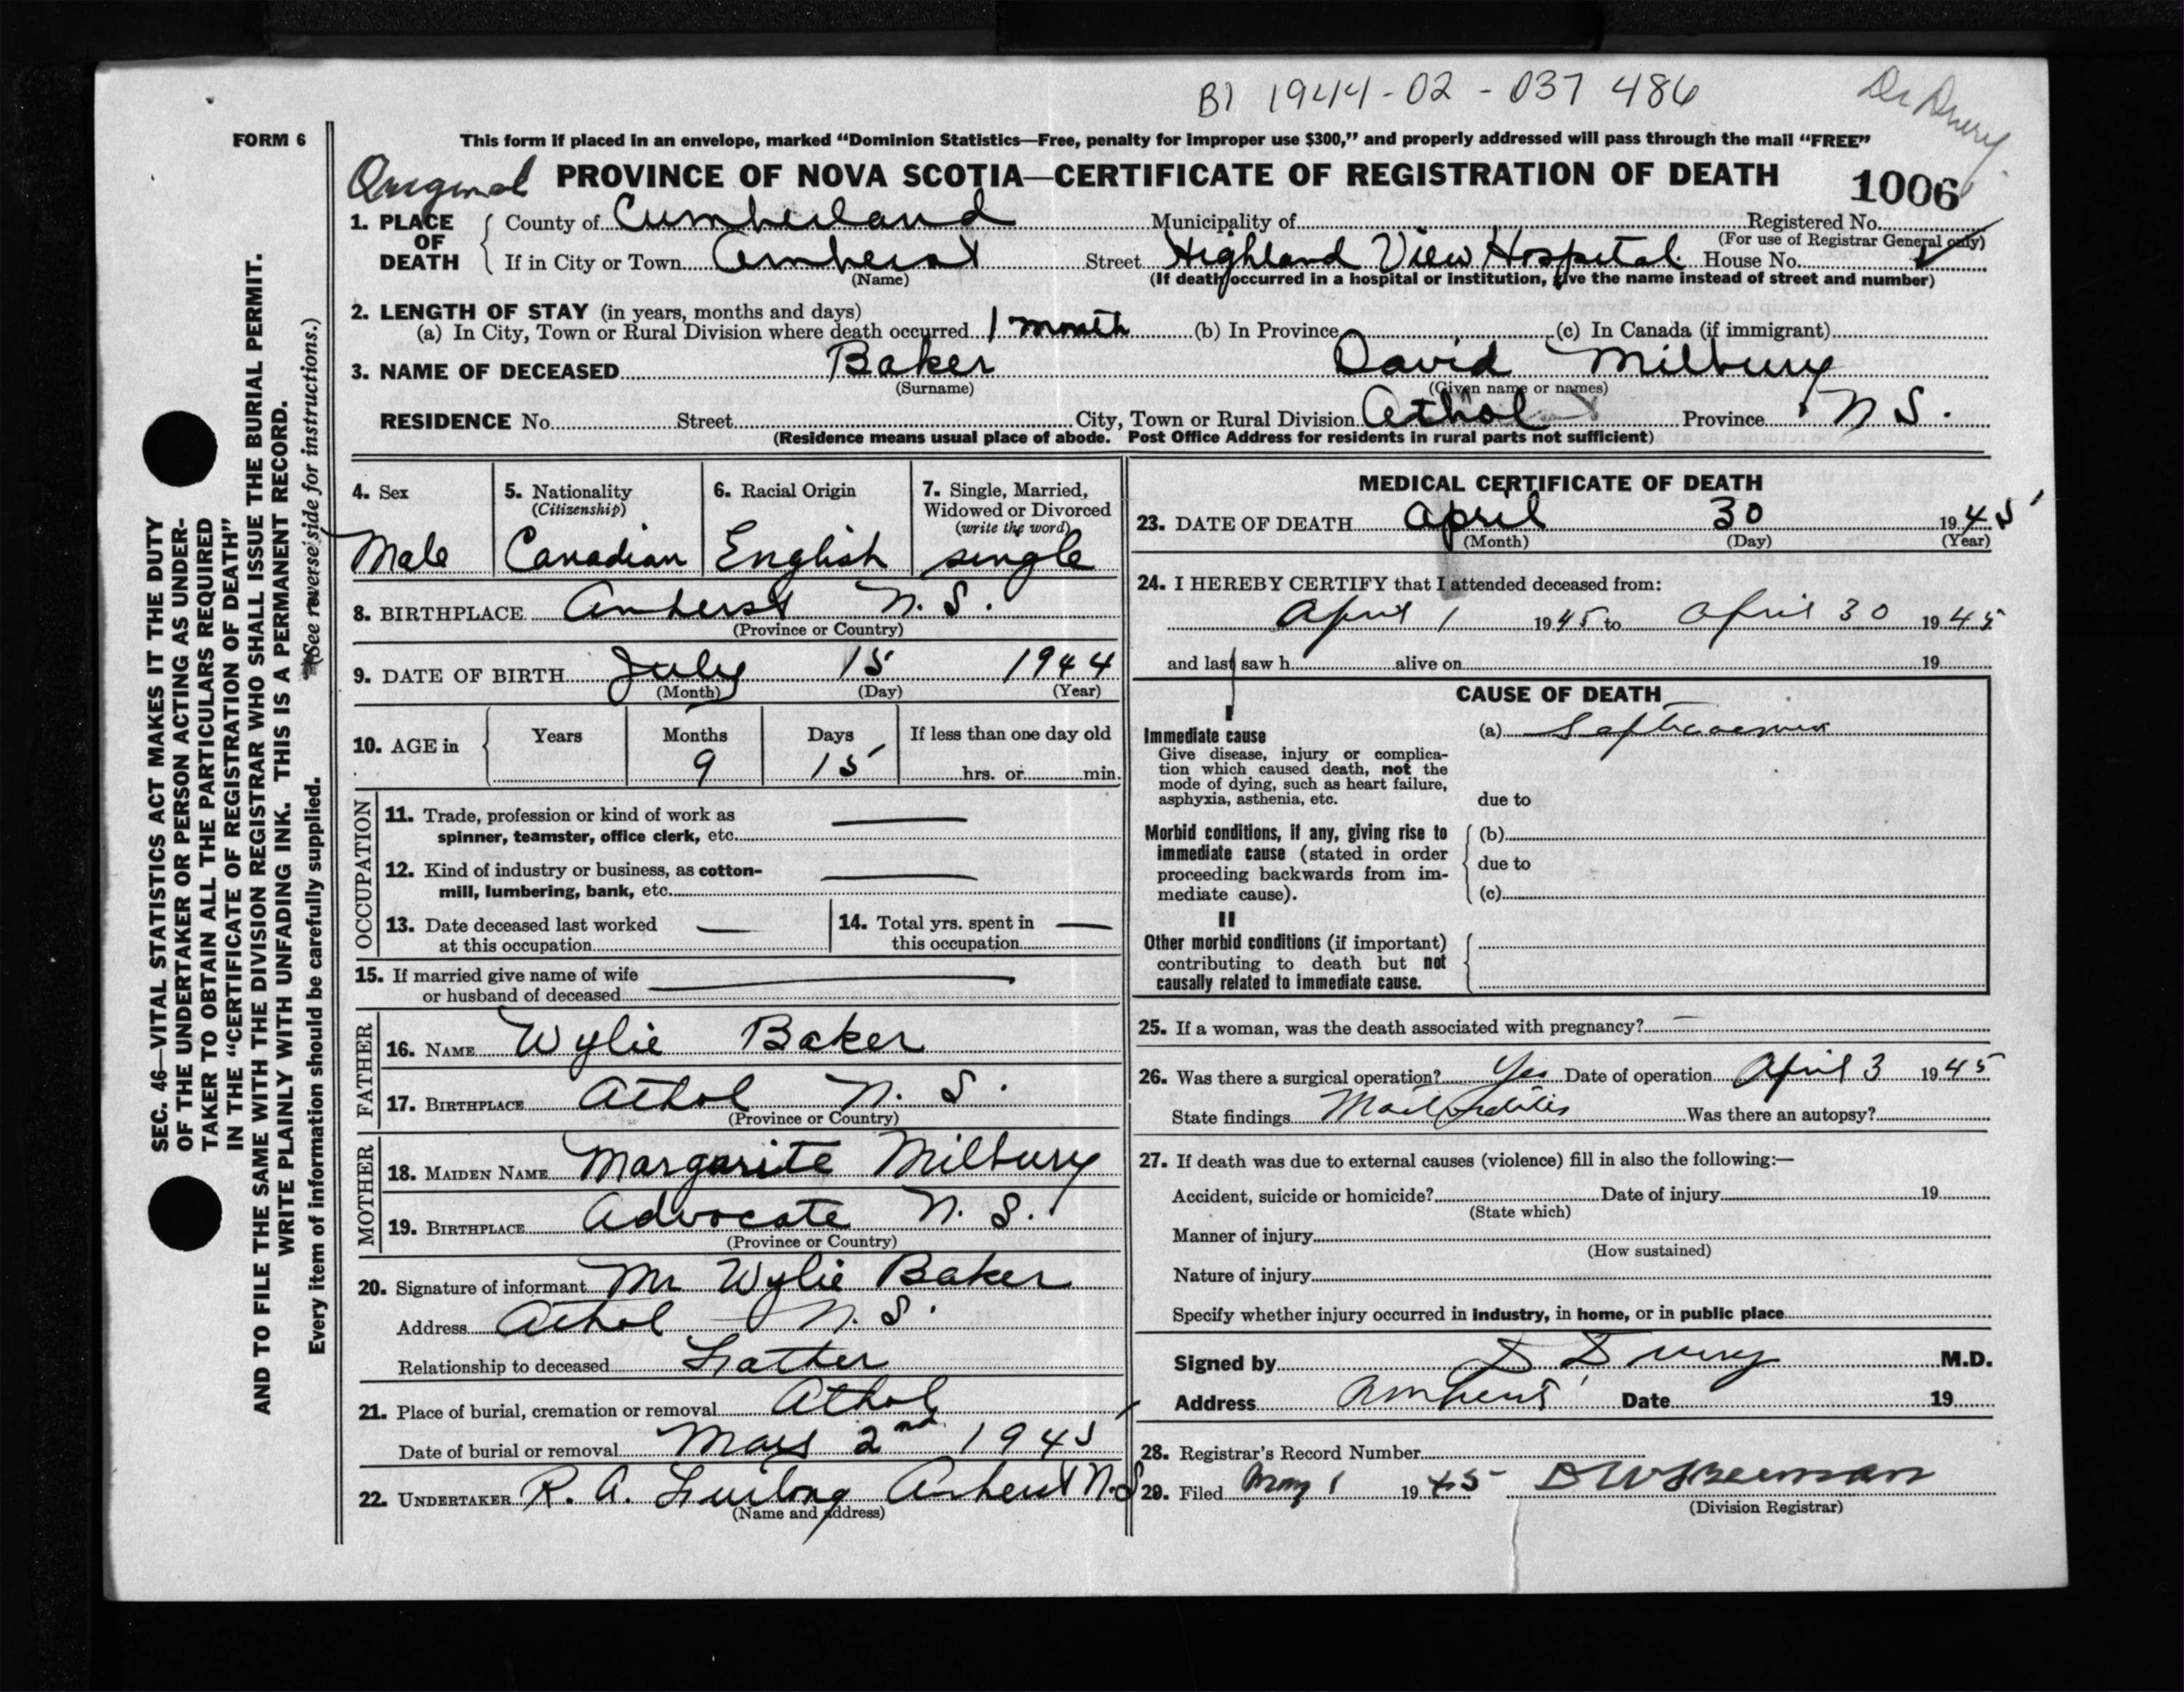 B1 1944-02-037 486
Dr Drury.
FORM 6
This form if placed in an envelope, marked “Dominion Statistics—Free, penalty for improper use $300,” and properly addressed will pass through the mail “FREE”
Original PROVINCE OF NOVA SCOTIA—CERTIFICATE OF REGISTRATION OF DEATH
1006
1. PLACE OF DEATH { County of Cumberland Municipality of Registered No.
(For use of Registrar General only)
If in City or Town Amherst Street Highland View Hospital House No.
(Name) (If death occurred in a hospital or institution, give the name instead of street and number)
2. LENGTH OF STAY (in years, months and days)
(a) In City, Town or Rural Division where death occurred 1 month (b) In Province (c) In Canada (if immigrant)
3. NAME OF DECEASED Baker David Milbury
(Surname) (Given name or names)
RESIDENCE No. Street City, Town or Rural Division Athol Province N S.
(Residence means usual place of abode. Post Office Address for residents in rural parts not sufficient)
4. Sex 5. Nationality 6. Racial Origin 7. Single, Married,
(Citizenship) Widowed or Divorced
(write the word)
Male Canadian English single
8. BIRTHPLACE Amherst N. S.
(Province or Country)
9. DATE OF BIRTH July 15 1944
(Month) (Day) (Year)
10. AGE in { Years Months Days If less than one day old
9 15 hrs. or min.
OCCUPATION
11. Trade, profession or kind of work as
spinner, teamster, office clerk, etc. —
12. Kind of industry or business, as cotton-
mill, lumbering, bank, etc. —
13. Date deceased last worked — 14. Total yrs. spent in —
at this occupation this occupation
15. If married give name of wife —
or husband of deceased
FATHER
16. NAME Wylie Baker
17. BIRTHPLACE Athol N. S.
(Province or Country)
MOTHER
18. MAIDEN NAME Margarite Milbury
19. BIRTHPLACE Advocate N. S.
(Province or Country)
20. Signature of informant Mr Wylie Baker
Address Athol N. S.
Relationship to deceased Father
21. Place of burial, cremation or removal Athol
Date of burial or removal May 2nd 1945
22. UNDERTAKER R. A. Furlong Amherst N.S
(Name and address)
MEDICAL CERTIFICATE OF DEATH
23. DATE OF DEATH April 30 1945
(Month) (Day) (Year)
24. I HEREBY CERTIFY that I attended deceased from:
April 1 1945 to April 30 1945
and last saw h alive on 19
CAUSE OF DEATH
I
Immediate cause (a) Septicaemia
Give disease, injury or complica-
tion which caused death, not the
mode of dying, such as heart failure,
asphyxia, asthenia, etc. due to
Morbid conditions, if any, giving rise to { (b)
immediate cause (stated in order due to
proceeding backwards from im-
mediate cause). (c)
II
Other morbid conditions (if important)
contributing to death but not
causally related to immediate cause.
25. If a woman, was the death associated with pregnancy? —
26. Was there a surgical operation? Yes Date of operation April 3 1945
State findings Mastoiditis Was there an autopsy?
27. If death was due to external causes (violence) fill in also the following:—
Accident, suicide or homicide? Date of injury 19
(State which)
Manner of injury
(How sustained)
Nature of injury
Specify whether injury occurred in industry, in home, or in public place
Signed by D Drury M.D.
Address Amherst Date 19
28. Registrar's Record Number
29. Filed May 1 1945
(Division Registrar)
SEC. 46—VITAL STATISTICS ACT MAKES IT THE DUTY
OF THE UNDERTAKER OR PERSON ACTING AS UNDER-
TAKER TO OBTAIN ALL THE PARTICULARS REQUIRED
IN THE “CERTIFICATE OF REGISTRATION OF DEATH”
AND TO FILE THE SAME WITH THE DIVISION REGISTRAR WHO SHALL ISSUE THE BURIAL PERMIT.
WRITE PLAINLY WITH UNFADING INK. THIS IS A PERMANENT RECORD.
Every item of information should be carefully supplied. (See reverse side for instructions.)